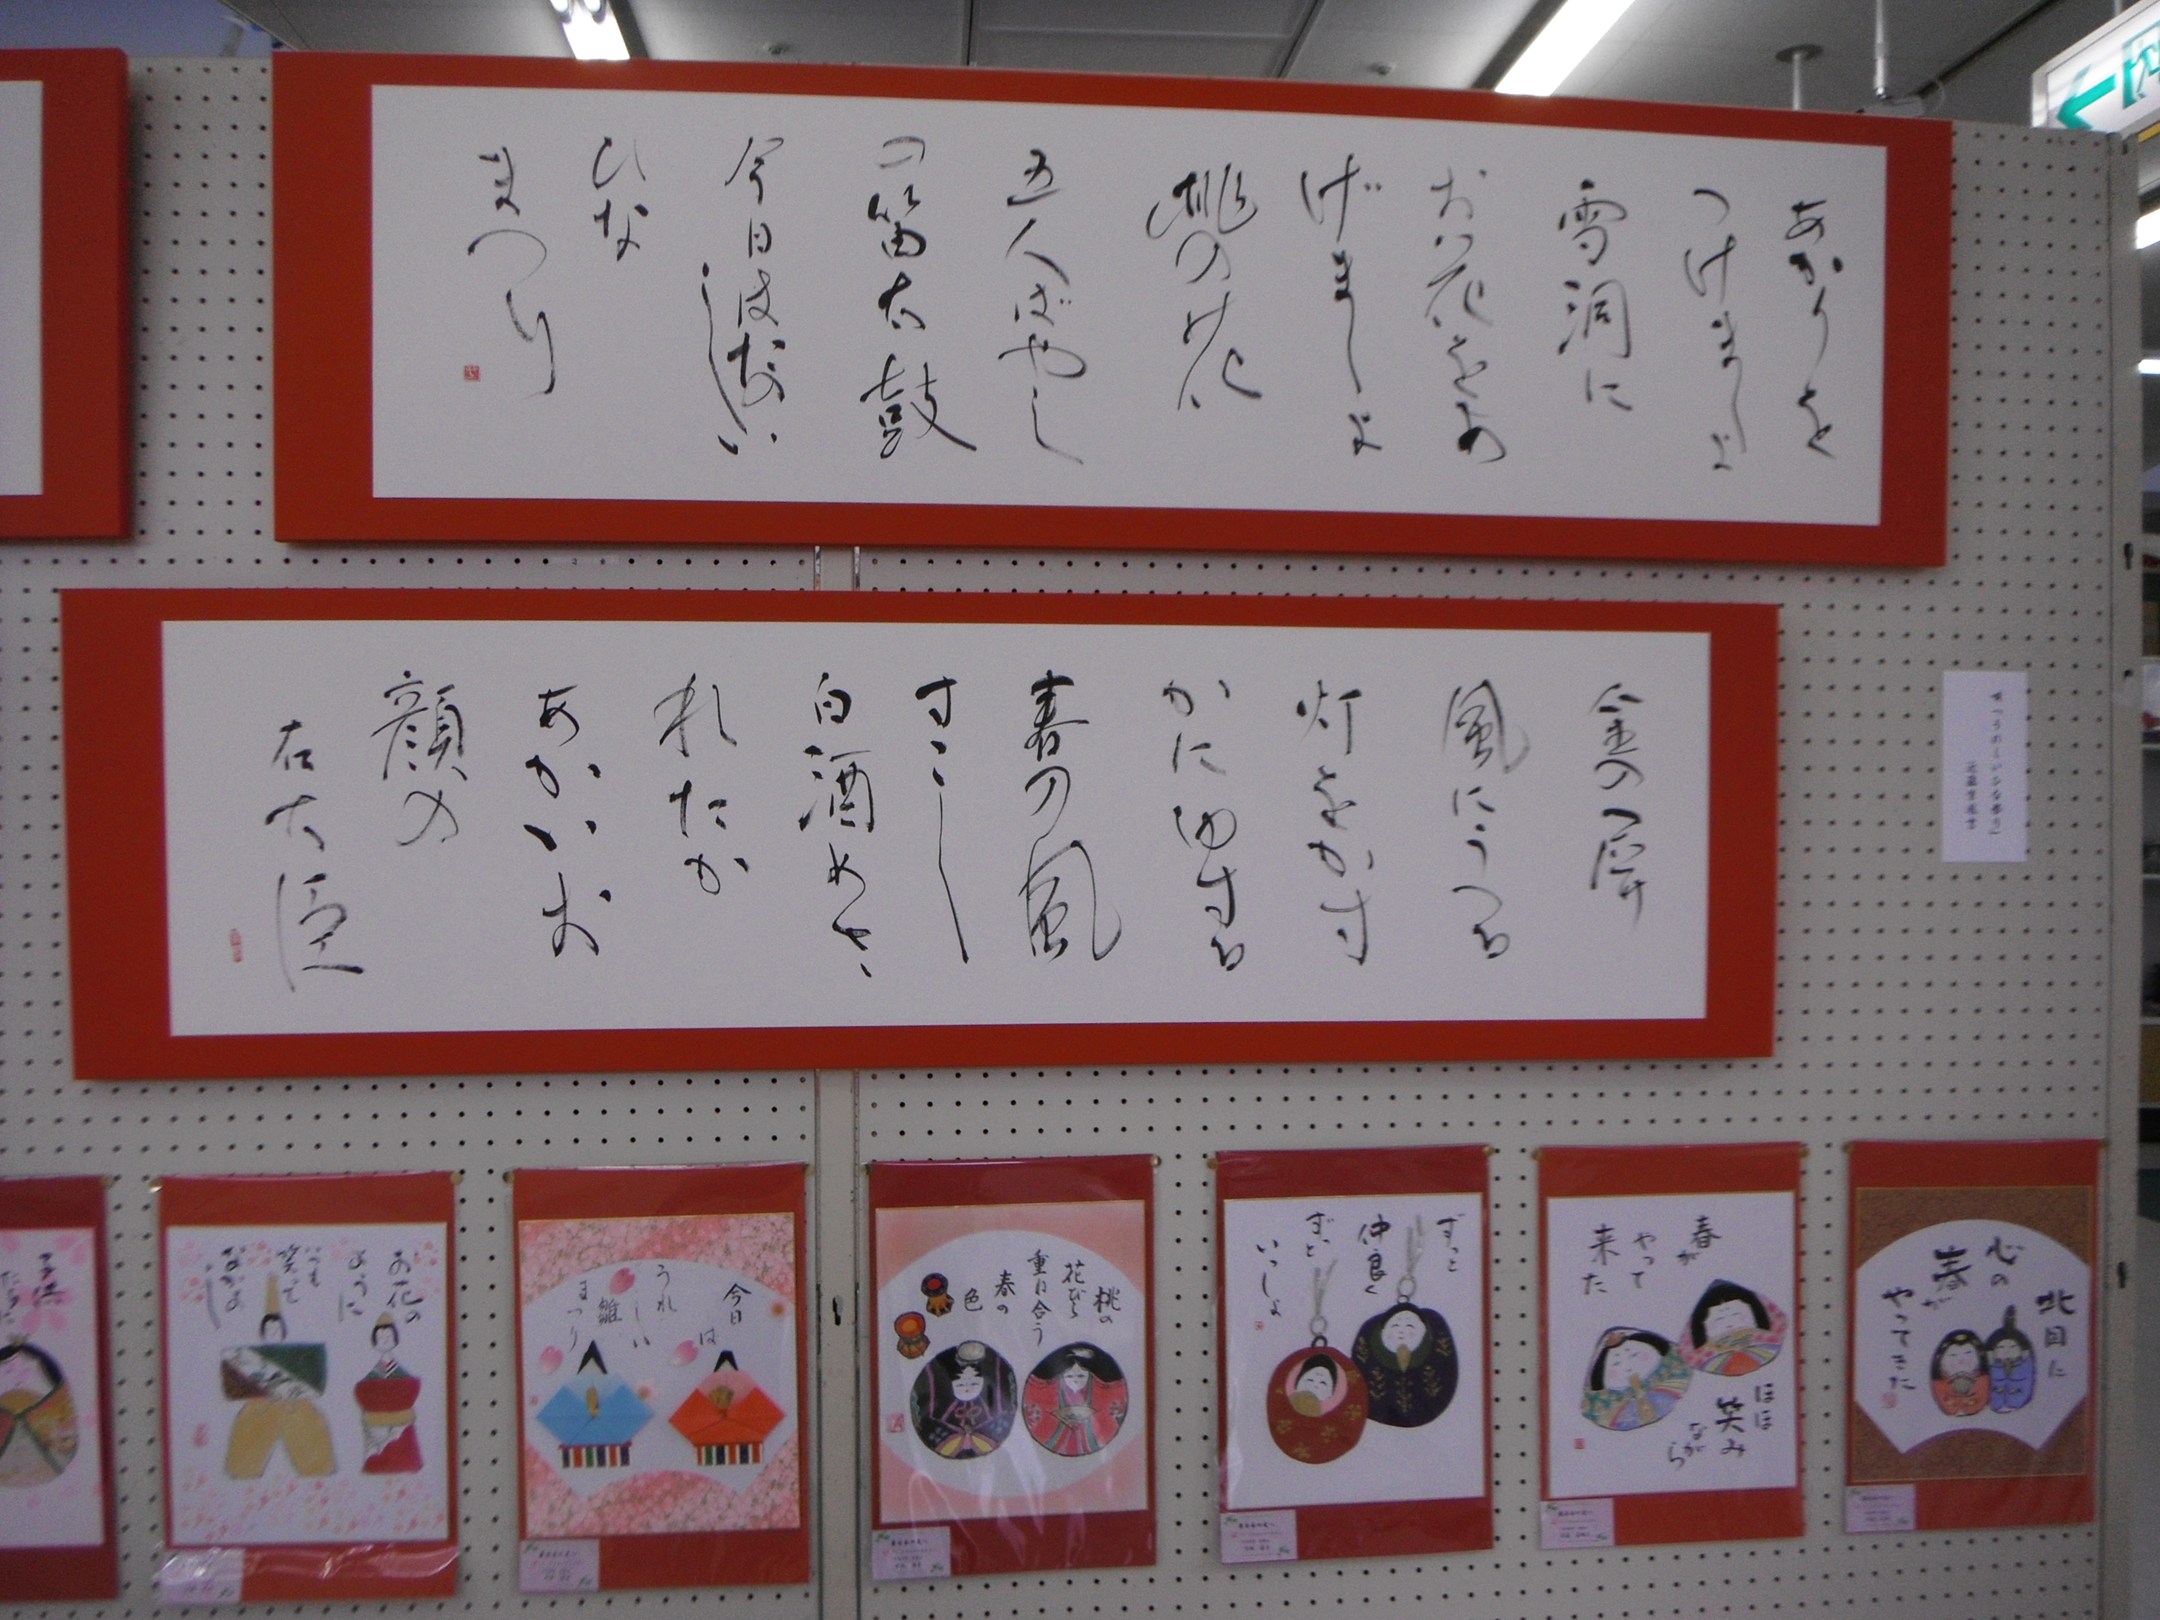 あかりを
つけました
雪洞に
お花をあ
げましょ
桃の花
五人ばやし
の笛太鼓
今日はたのしい
ひな
まつり
金の屏
風にうつる
灯をかす
かにゆする
春の風
すこし
白酒めさ
れたか
あかいお
顔の
右大臣
北国に
心の
春が
やってきた
春が
やって
来た
ほほ
笑み
ながら
ずっと
仲良く
ずっと
いっしょ
桃の
花びら
重ね合う
春の
色
今日
は
うれ
しい
雛
まつり
お花の
ように
いつも
笑って
なかよ